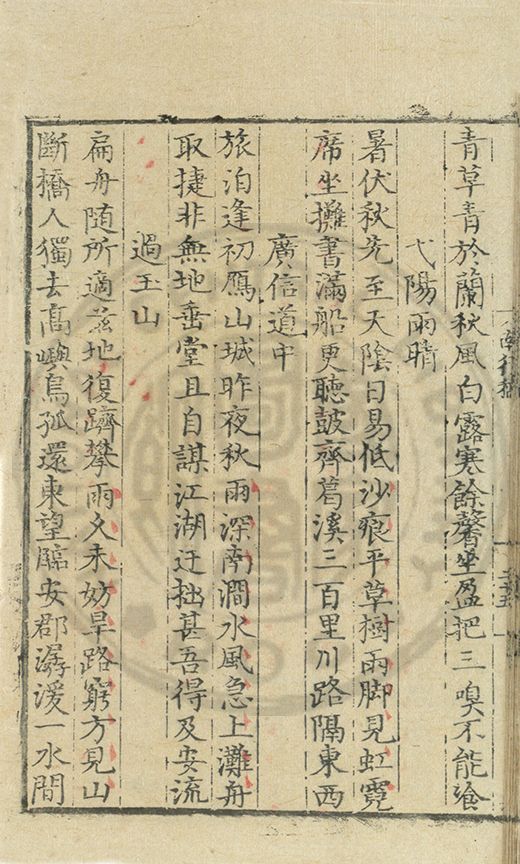 青草青於蘭秋風白露寒餘馨坐盈把三嗅不能飡
弋陽雨晴
暑伏秋先至天陰日易低沙痕平草樹雨脚見虹霓
席坐攤書滿船更聽鼓齊葛溪三百里川路隔東西
廣信道中
旅泊逢初鴈山城昨夜秋雨深南澗水風急上灘舟
取捷非無地垂堂且自謀江湖迂拙甚吾得及安流
過玉山
扁舟随所適茲地復躋攀雨久未妨旱路窮方見山
斷橋人獨去高嶼鳥孤還東望臨安郡潺湲一水間